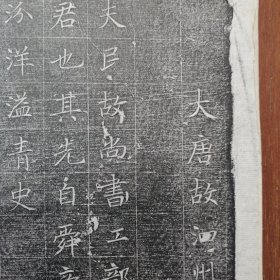 大唐故泗州
夫臣故尚書工部
君也其先自舜
洋溢青史